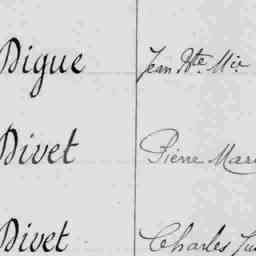 Digue Jean Bte Mie
Divet Pierre Mari
Divet Charles Ju